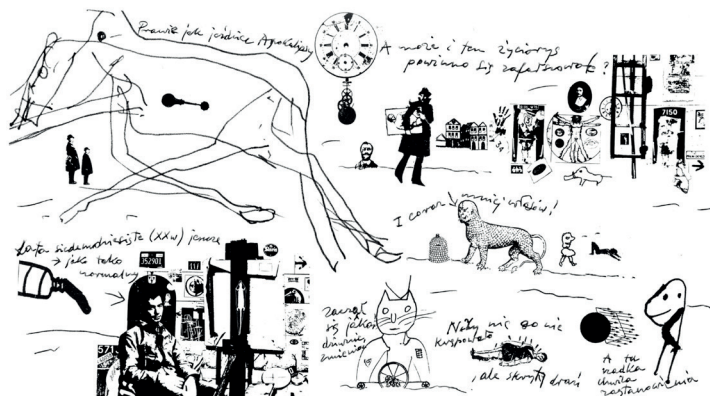 Prawie jak jeźdźce Apokalipsy
A może i ten życiorys
powinno się zafałszować?
7150
I coraz mniej włosów!
Lata siedemdziesiąte (XXw) jeszcze
→ jako tako
normalny
352901
57
zaczął
się jakoś
dziwnie
zmieniać
Niby nic go nie
krępowało
, ale skryty drań
A tu
rzadka
chwila
zastanowienia